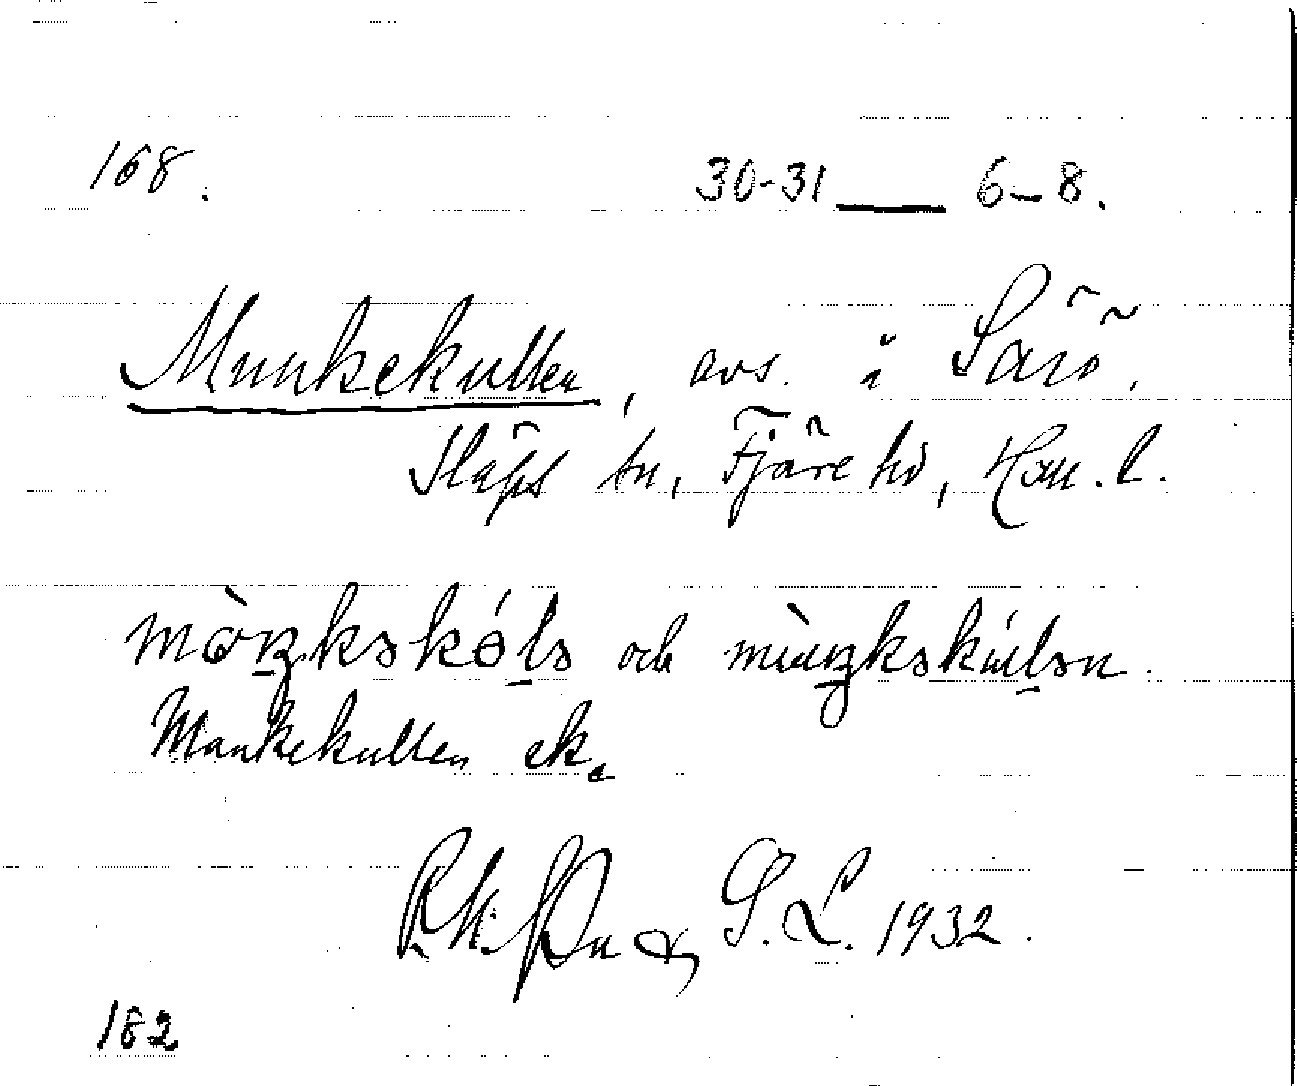 168. 30-31 — 6-8.
Munkekullen, avs. i Särö,
Släps sn, Fjäre hd, Hall. l.
mòŋkəkólə och mùŋkəkúlən.
Munkekullen ek.
G. L. 1932.
182